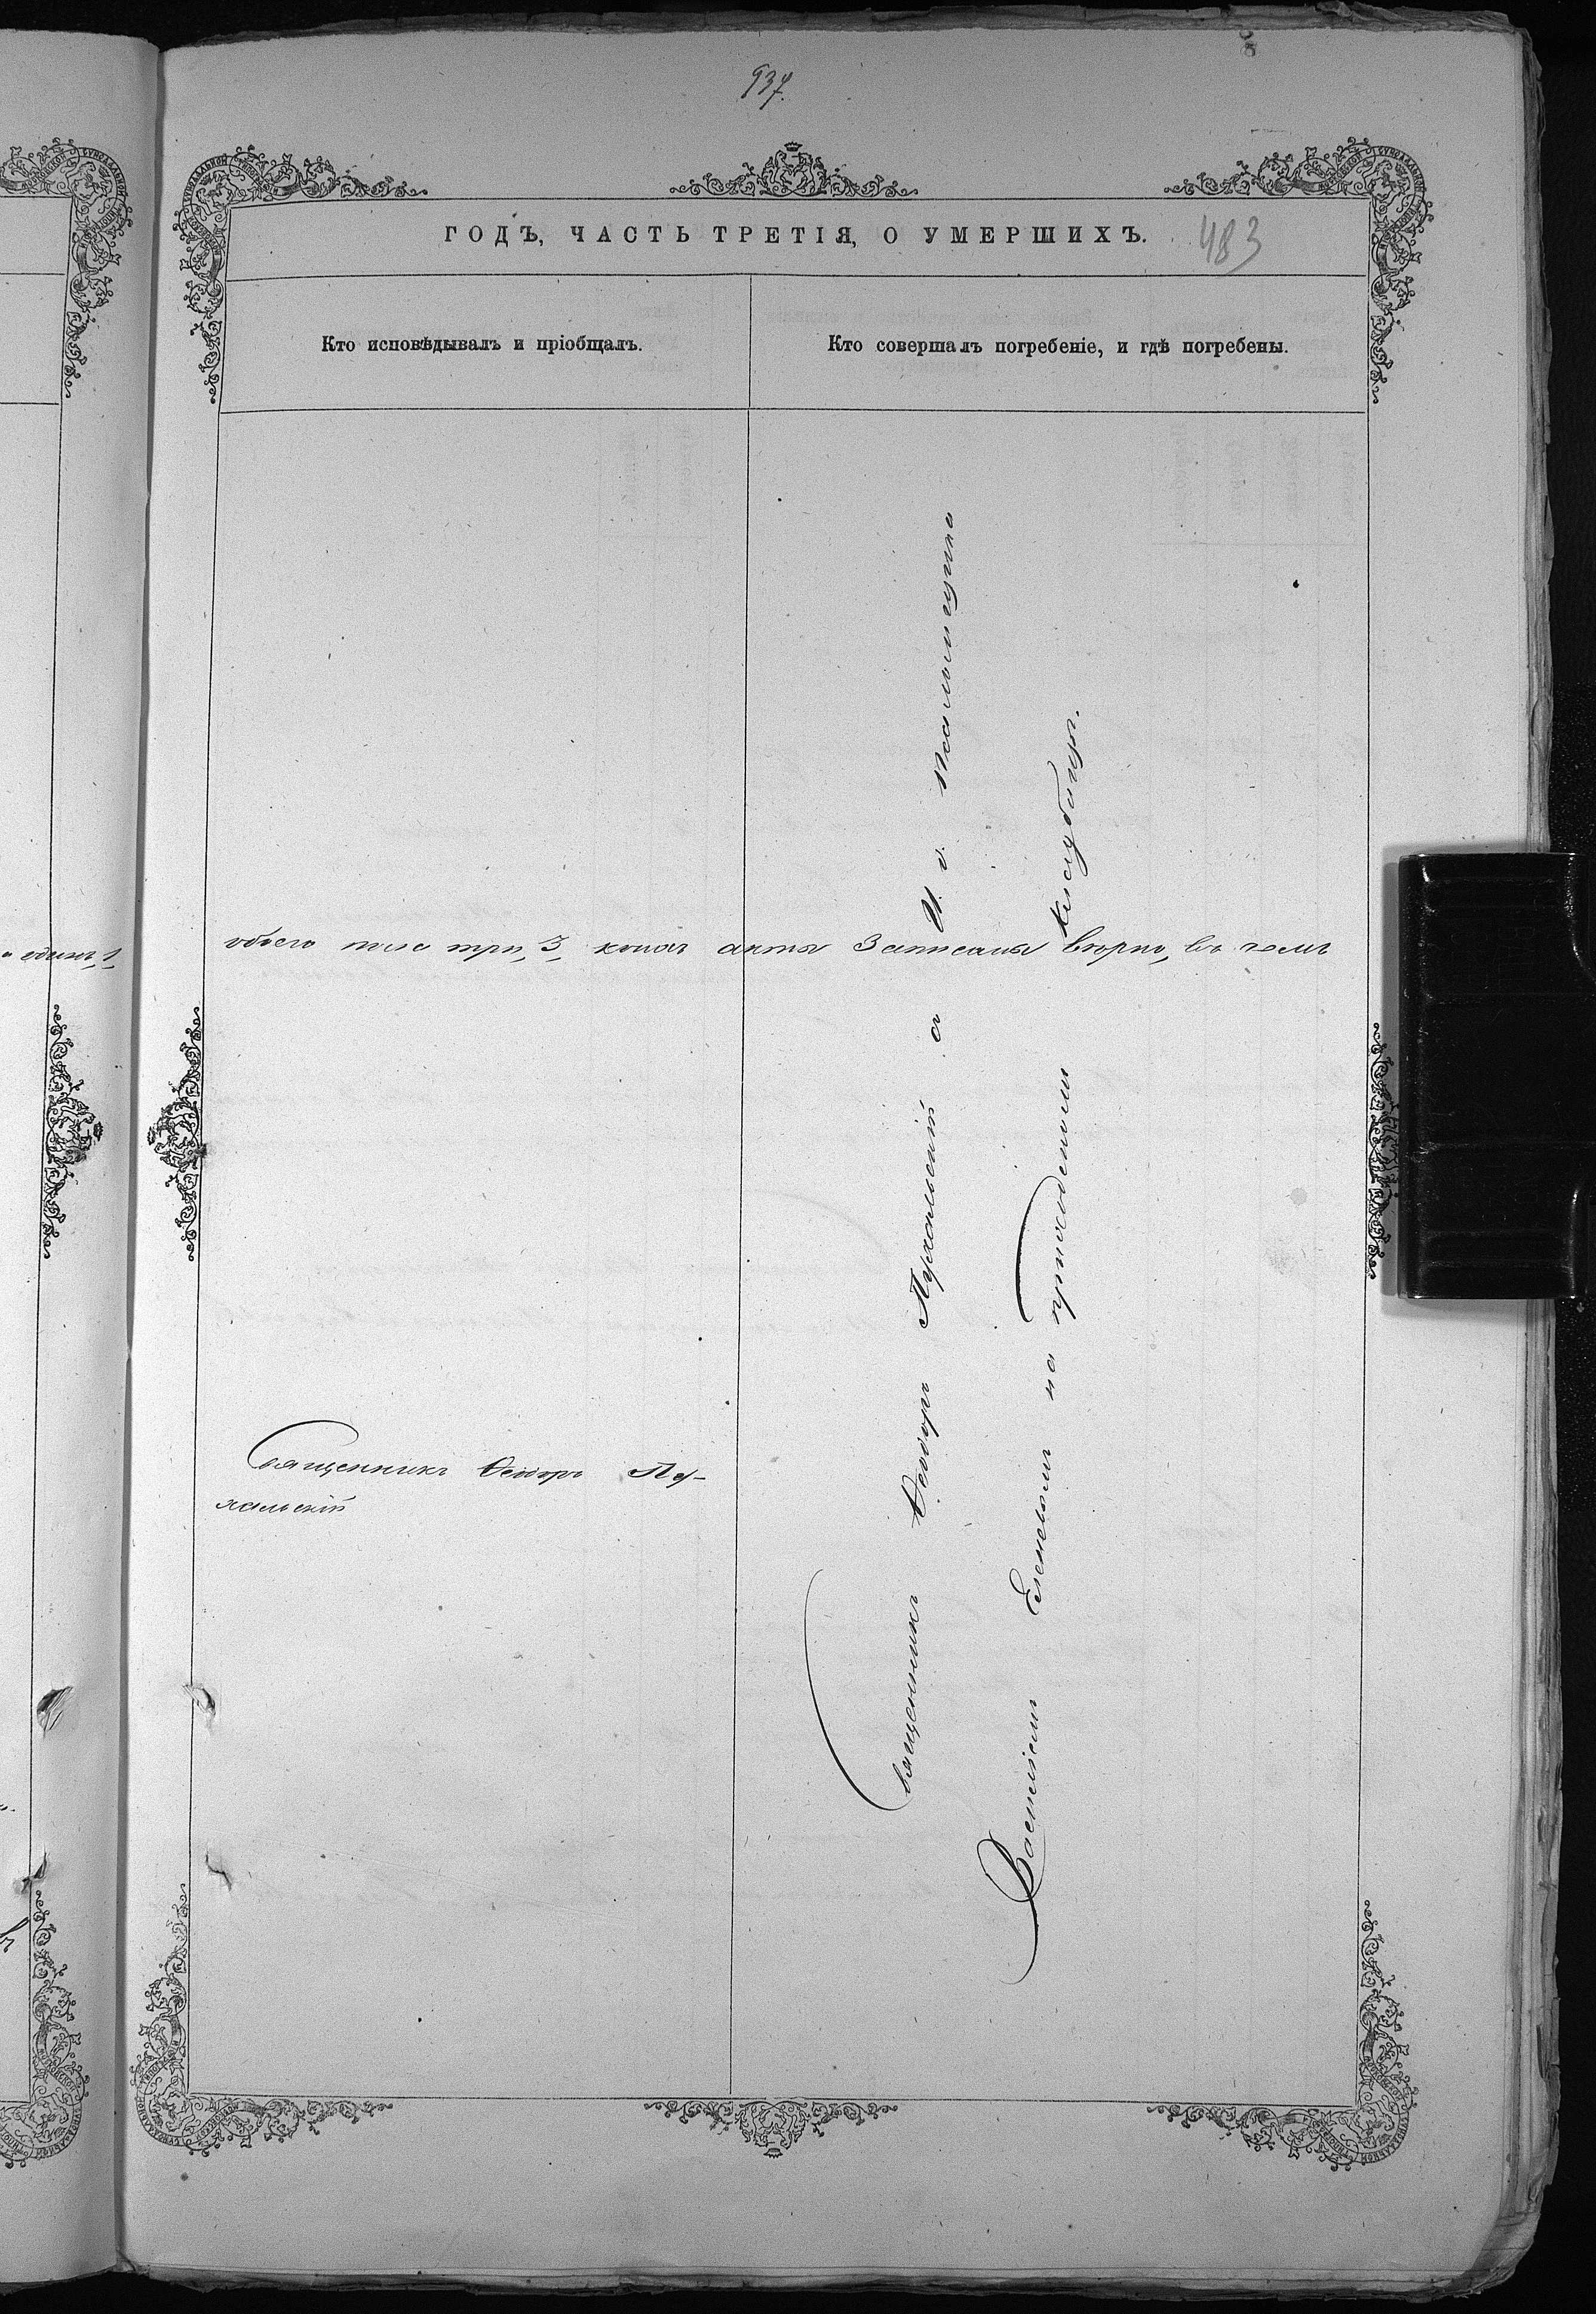 937.
ГОДЪ, ЧАСТЬ ТРЕТІЯ, О УМЕРШИХЪ.
483
Кто исповѣдывалъ и пріобщалъ.
Кто совершалъ погребеніе, и гдѣ погребены.
одинъ 1,
обоего пола три, 3, коихъ акты записаны вѣрно, въ чемъ
Священникъ Ѳеодоръ Пу-
хальскій
Священникъ Ѳеодоръ Пухальскій съ И. д. псаломщика
Василіемъ на приходскомъ кладбищѣ.